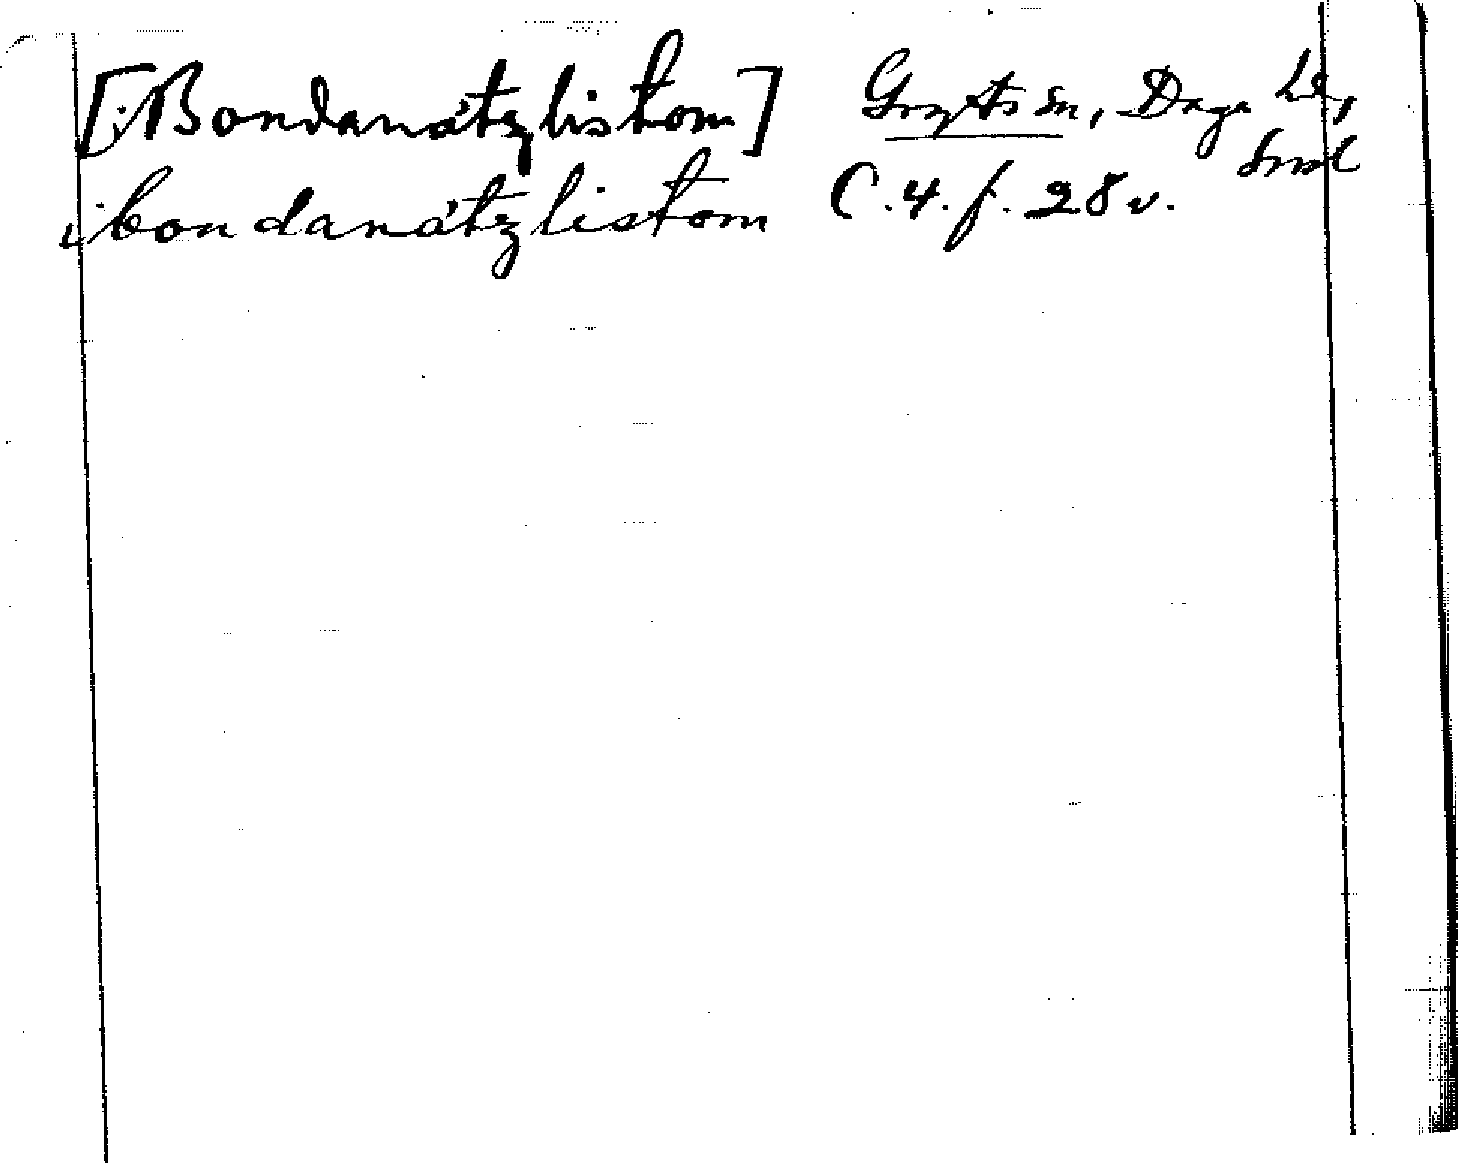 [i Bondanätzlistom] Gryts sn, Daga hd,
Sml
i bondanätzlistom C. 4. f. 28 v.